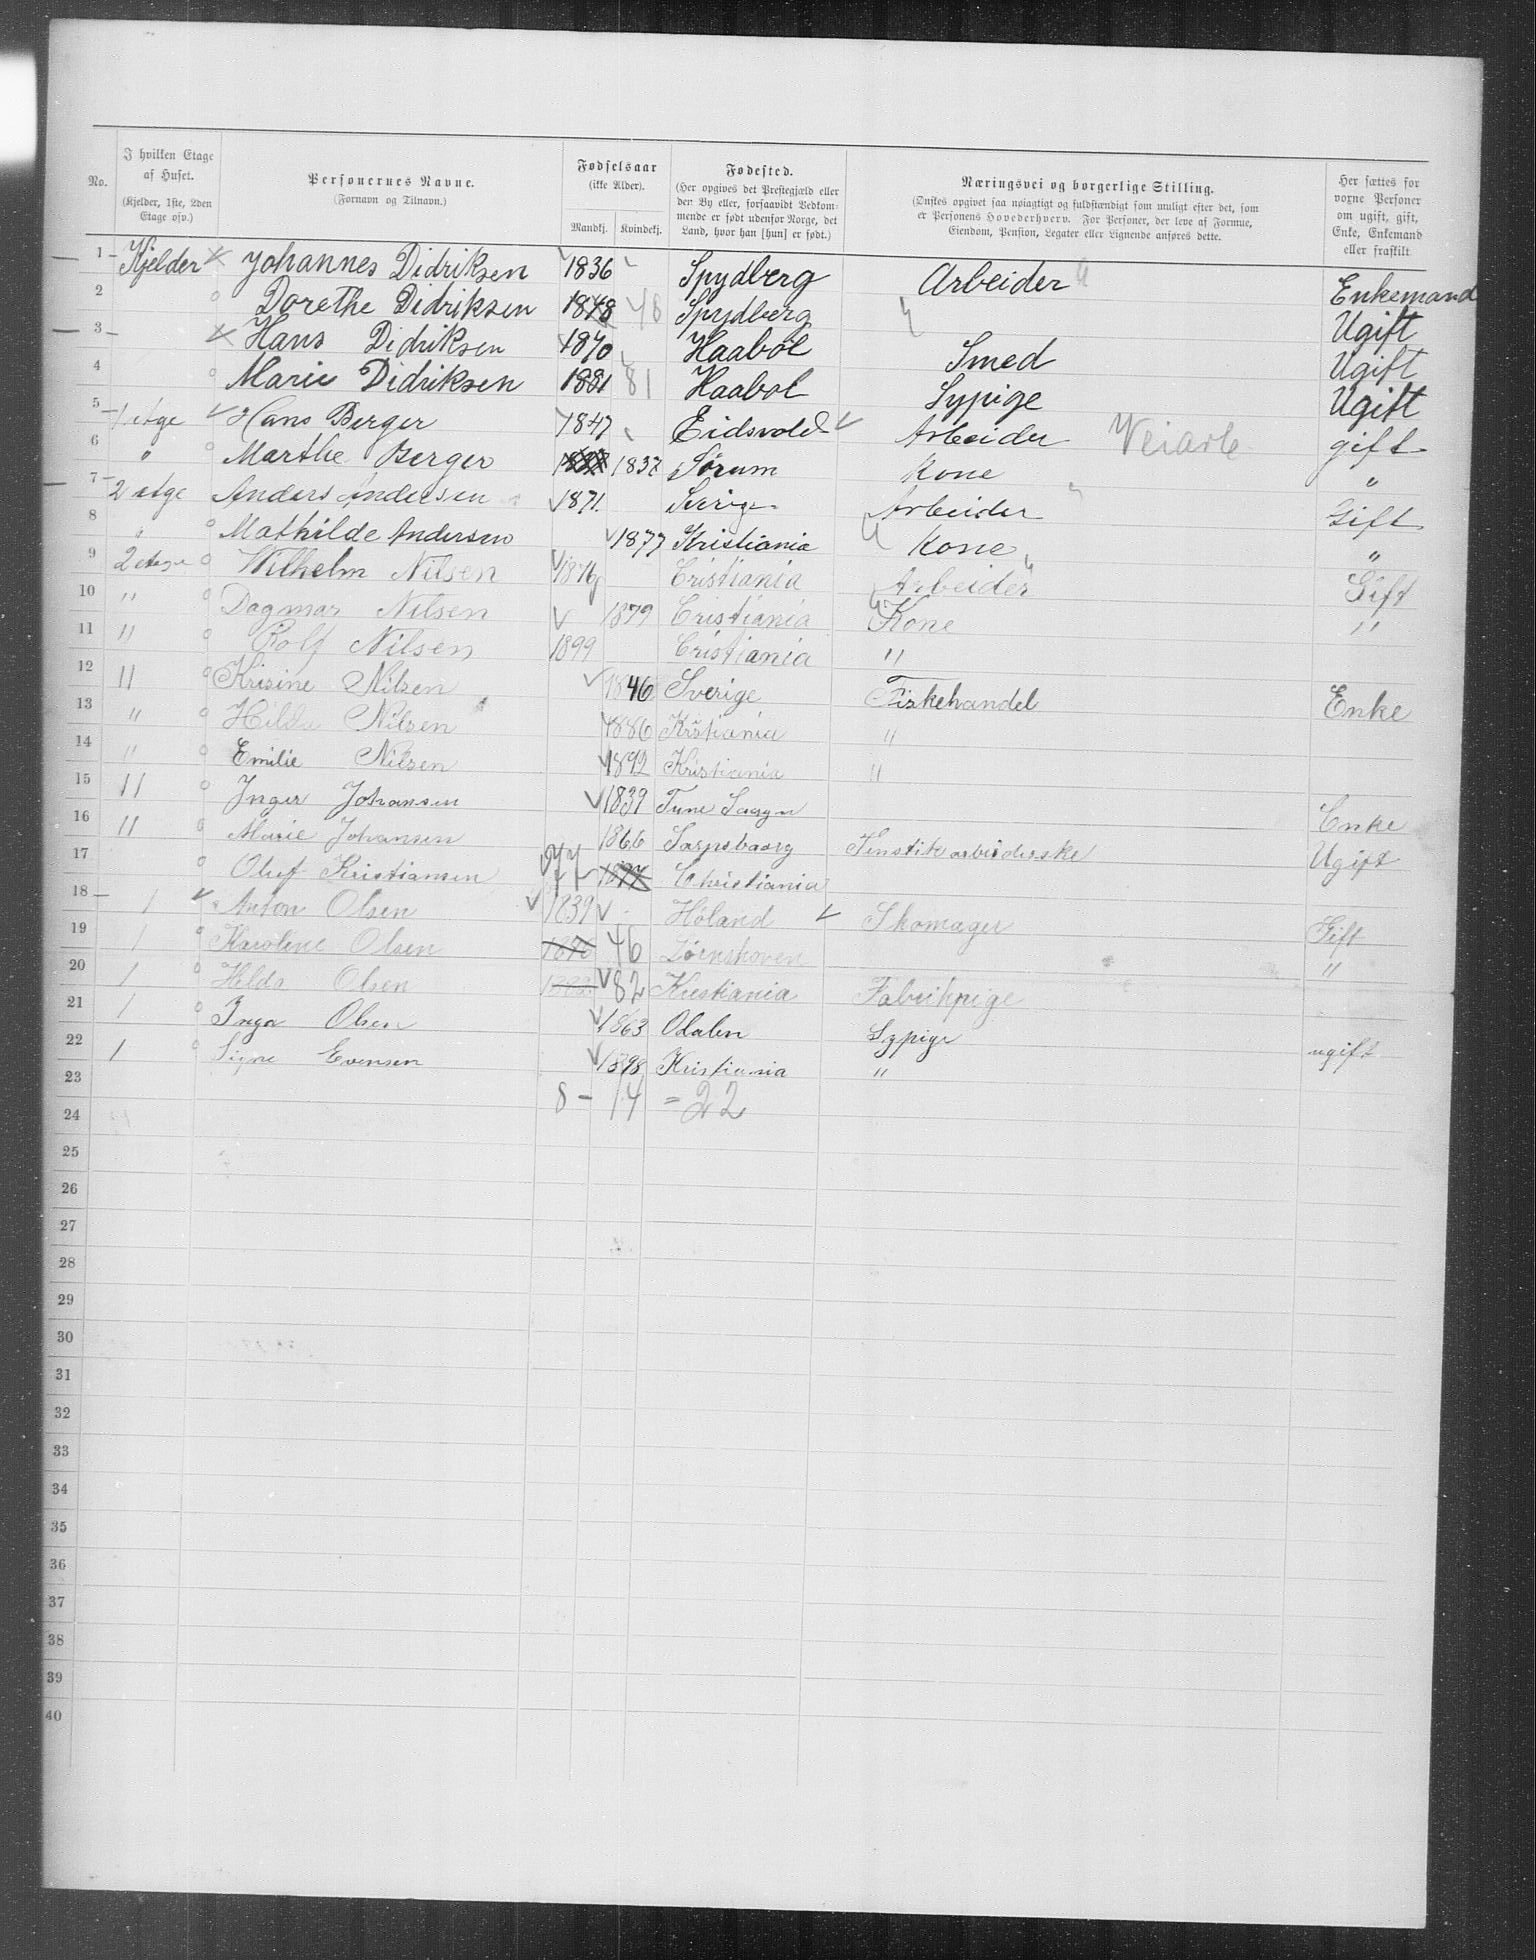 No. I hvilken Etage af Huset. (Kjelder, 1ste, 2den Etage osv.) Personernes Navne. (Fornavn og Tilnavn.) Fødselsaar (ikke Alder). Mandkj. Kvindekj. Fødested. (Her opgives det Prestegjæld eller den By eller, forsaavidt Vedkommende er født udenfor Norge, det Land, hvor han [hun] er født.) Næringsvei og borgerlige Stilling. (Ønskes opgivet saa nøiagtigt og fuldstændigt som muligt efter det, som er Personens Hovederhverv. For Personer, der leve af Formue, Eiendom, Pension, Legater eller Lignende anføres dette. Her sættes for voxne Personer om ugift, gift, Enke, Enkemand eller fraskilt.
1 Kjelder Johannes Didriksen 1836 Spydberg Arbeider Enkemand
2 Dorethe Didriksen 1848 48 Spydberg Ugift
3 Hans Didriksen 1870 Haabøl Smed Ugift
4 Marie Didriksen 1881 81 Haabøl Sypige Ugift
5 1 etage Hans Berger 1847 Eidsvold Arbeider Veiarb gift
6 " Marthe Berger 1837 Sørum Kone "
7 2 etge Anders Andersen 1871 Sverige Arbeider Gift
8 " Mathilde Andersen 1877 Kristiania Kone "
9 2 etage Wilhelm Nilsen 1876 Cristiania Arbeider Gift
10 " Dagmar Nilsen 1879 Cristiania Kone "
11 " Rolf Nilsen 1899 Cristiania "
12 " Krisine Nilsen 1846 Sverige Fiskehandel Enke
13 " Hilda Nilsen 1886 Kristiania "
14 " Emilie Nilsen 1892 Kristiania "
15 " Inger Johansen 1839 Tune Enke
16 " Marie Johansen 1866 Sarpsbaarg Fenstikarbeiderske Ugift
17 Oluf Kristiansen 77 1877 Christiania
18 1 Anton Olsen 1839 Høland Skomager Gift
19 1 Karoline Olsen 46 "
20 1 Hilda Olsen 82 Kristiania Fabrikpige
21 1 Inga Olsen 1863 Odalen Sypige ugift
22 1 Signe Evensen 1898 Kristiania "
23
8 - 14 = 22
24
25
26
27
28
29
30
31
32
33
34
35
36
37
38
39
40